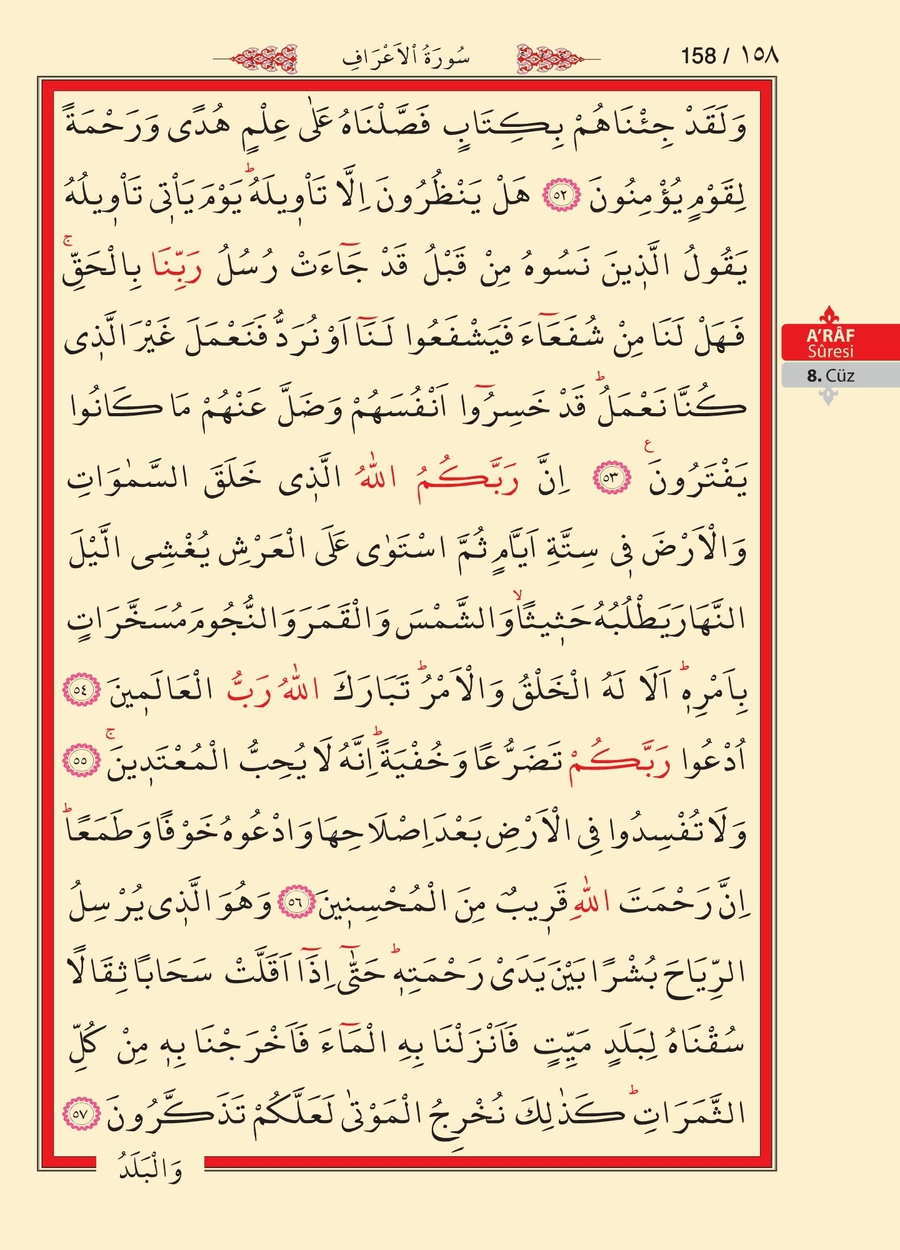 158 / ١٥٨
سُورَةُ الْاَعْرَافِ
وَلَقَدْ جِئْنَاهُمْ بِكِتَابٍ فَصَّلْنَاهُ عَلٰى عِلْمٍ هُدًى وَرَحْمَةً
لِقَوْمٍ يُؤْمِنُونَ ٥٢ هَلْ يَنْظُرُونَ اِلَّا تَأْوٖيلَهُؕ يَوْمَ يَأْتٖى تَأْوٖيلُهُ
يَقُولُ الَّذٖينَ نَسُوهُ مِنْ قَبْلُ قَدْ جَٓاءَتْ رُسُلُ رَبِّنَا بِالْحَقِّۚ
فَهَلْ لَنَا مِنْ شُفَعَٓاءَ فَيَشْفَعُوا لَنَٓا اَوْ نُرَدُّ فَنَعْمَلَ غَيْرَ الَّذٖى
كُنَّا نَعْمَلُؕ قَدْ خَسِرُٓوا اَنْفُسَهُمْ وَضَلَّ عَنْهُمْ مَا كَانُوا
يَفْتَرُونَ ع ٥٣ اِنَّ رَبَّكُمُ اللّٰهُ الَّذٖى خَلَقَ السَّمٰوَاتِ
وَالْاَرْضَ فٖى سِتَّةِ اَيَّامٍ ثُمَّ اسْتَوٰى عَلَى الْعَرْشِ يُغْشِى الَّيْلَ
النَّهَارَ يَطْلُبُهُ حَثٖيثًاۙ وَالشَّمْسَ وَالْقَمَرَ وَالنُّجُومَ مُسَخَّرَاتٍ
بِاَمْرِهٖؕ اَلَا لَهُ الْخَلْقُ وَالْاَمْرُؕ تَبَارَكَ اللّٰهُ رَبُّ الْعَالَمٖينَ ٥٤
اُدْعُوا رَبَّكُمْ تَضَرُّعًا وَخُفْيَةًؕ اِنَّهُ لَا يُحِبُّ الْمُعْتَدٖينَۚ ٥٥
وَلَا تُفْسِدُوا فِى الْاَرْضِ بَعْدَ اِصْلَاحِهَا وَادْعُوهُ خَوْفًا وَطَمَعًاؕ
اِنَّ رَحْمَتَ اللّٰهِ قَرٖيبٌ مِنَ الْمُحْسِنٖينَ ٥٦ وَهُوَ الَّذٖى يُرْسِلُ
الرِّيَاحَ بُشْرًا بَيْنَ يَدَىْ رَحْمَتِهٖؕ حَتّٰٓى اِذَٓا اَقَلَّتْ سَحَابًا ثِقَالًا
سُقْنَاهُ لِبَلَدٍ مَيِّتٍ فَاَنْزَلْنَا بِهِ الْمَٓاءَ فَاَخْرَجْنَا بِهٖ مِنْ كُلِّ
الثَّمَرَاتِؕ كَذٰلِكَ نُخْرِجُ الْمَوْتٰى لَعَلَّكُمْ تَذَكَّرُونَ ٥٧
وَالْبَلَدُ
A'RÂF
Sûresi
8. Cüz